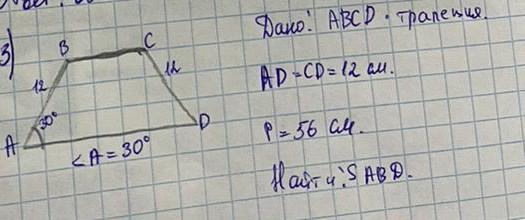 3)
B
C
12
12
30°
A
D
<A = 30°
Дано: ABCD - трапеция.
AD = CD = 12 см.
P = 56 см.
Найти: S ABD.